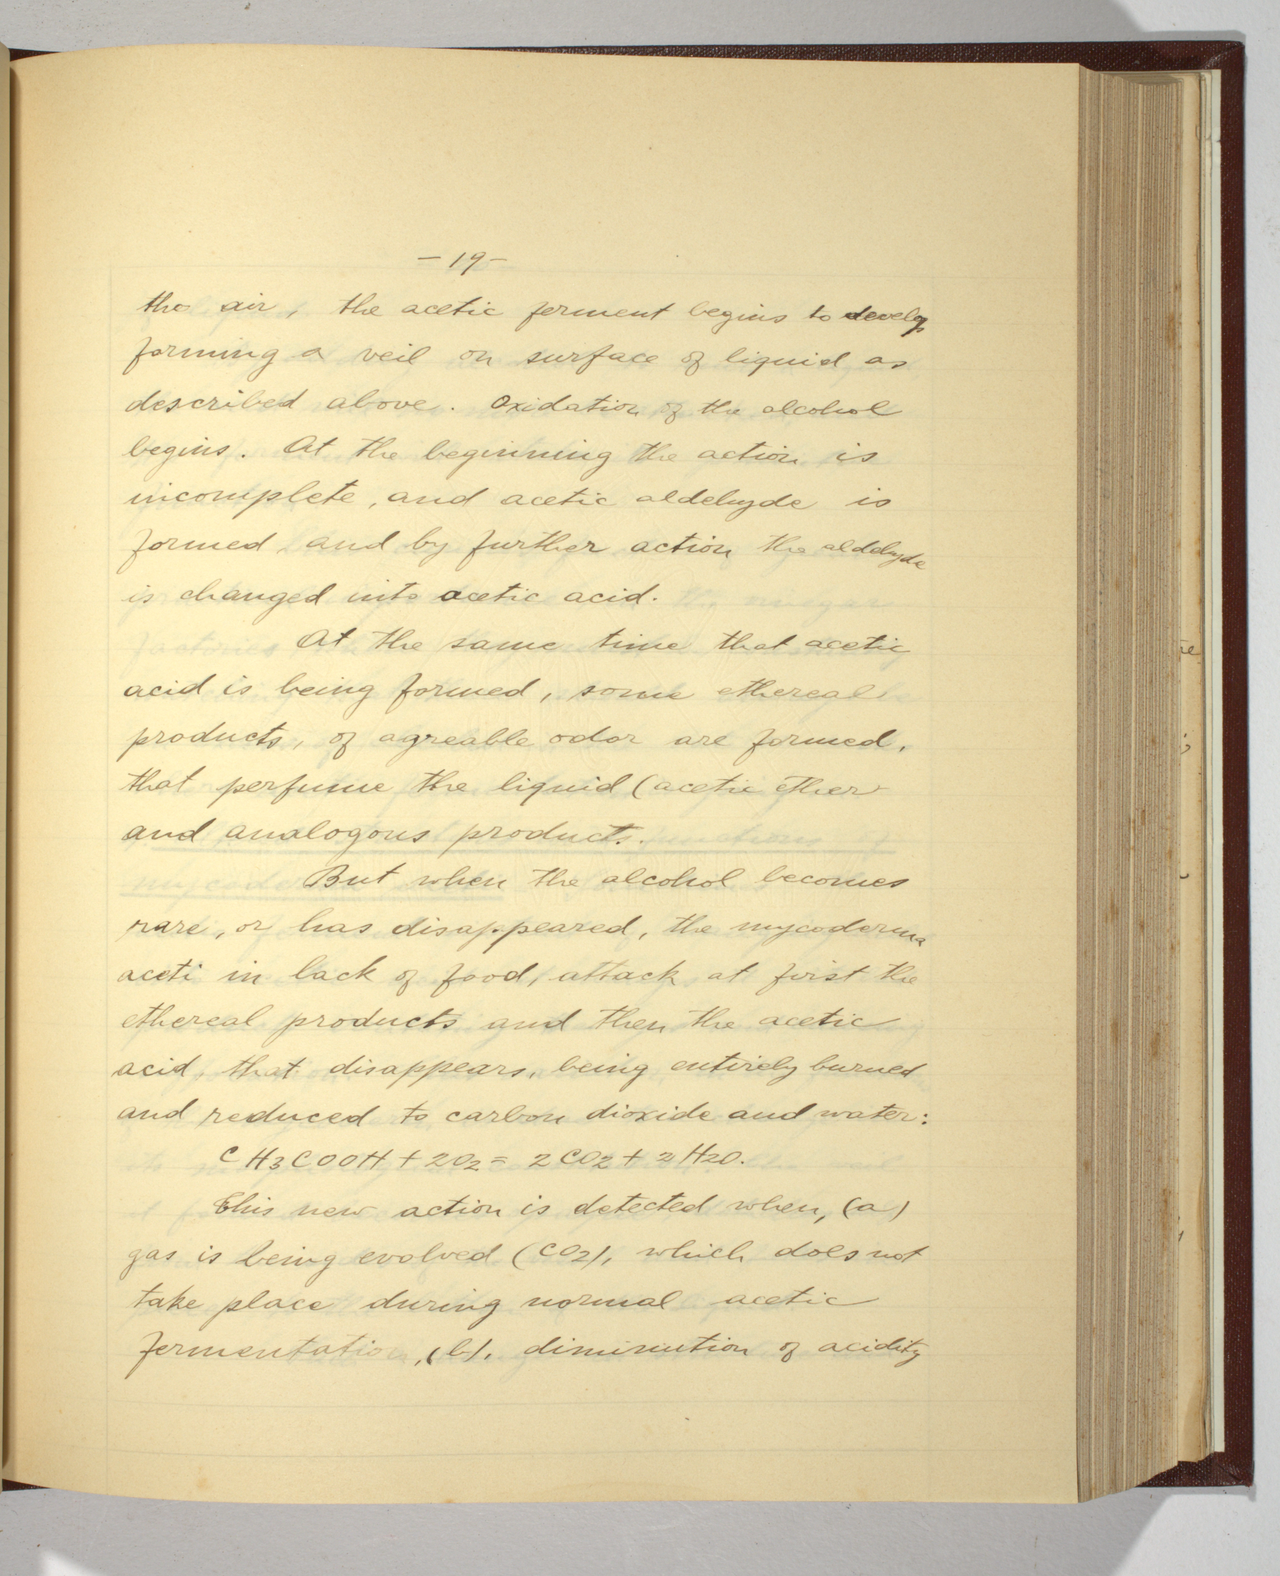 -19-
the air, the acetic ferment begins to develop
forming a veil on surface of liquid as
described above. Oxidation of the alcohol
begins. At the beginning the action is
incomplete, and acetic aldehyde is
formed, and by further action the aldehyde
is changed into acetic acid.
At the same time that acetic
acid is being formed, some ethereal
products, of agreable odor are formed,
that perfume the liquid (acetic ether
and analogous products.
But when the alcohol becomes
rare, or has disappeared, the mycoderma
aceti in lack of food, attack at first the
ethereal products and then the acetic
acid, that disappears, being entirely burned
and reduced to carbon dioxide and water:
CH3COOH + 2O2 = 2CO2 + 2H2O.
This new action is detected when, (a)
gas is being evolved (CO2), which does not
take place during normal acetic
fermentation, (b), diminution of acidity